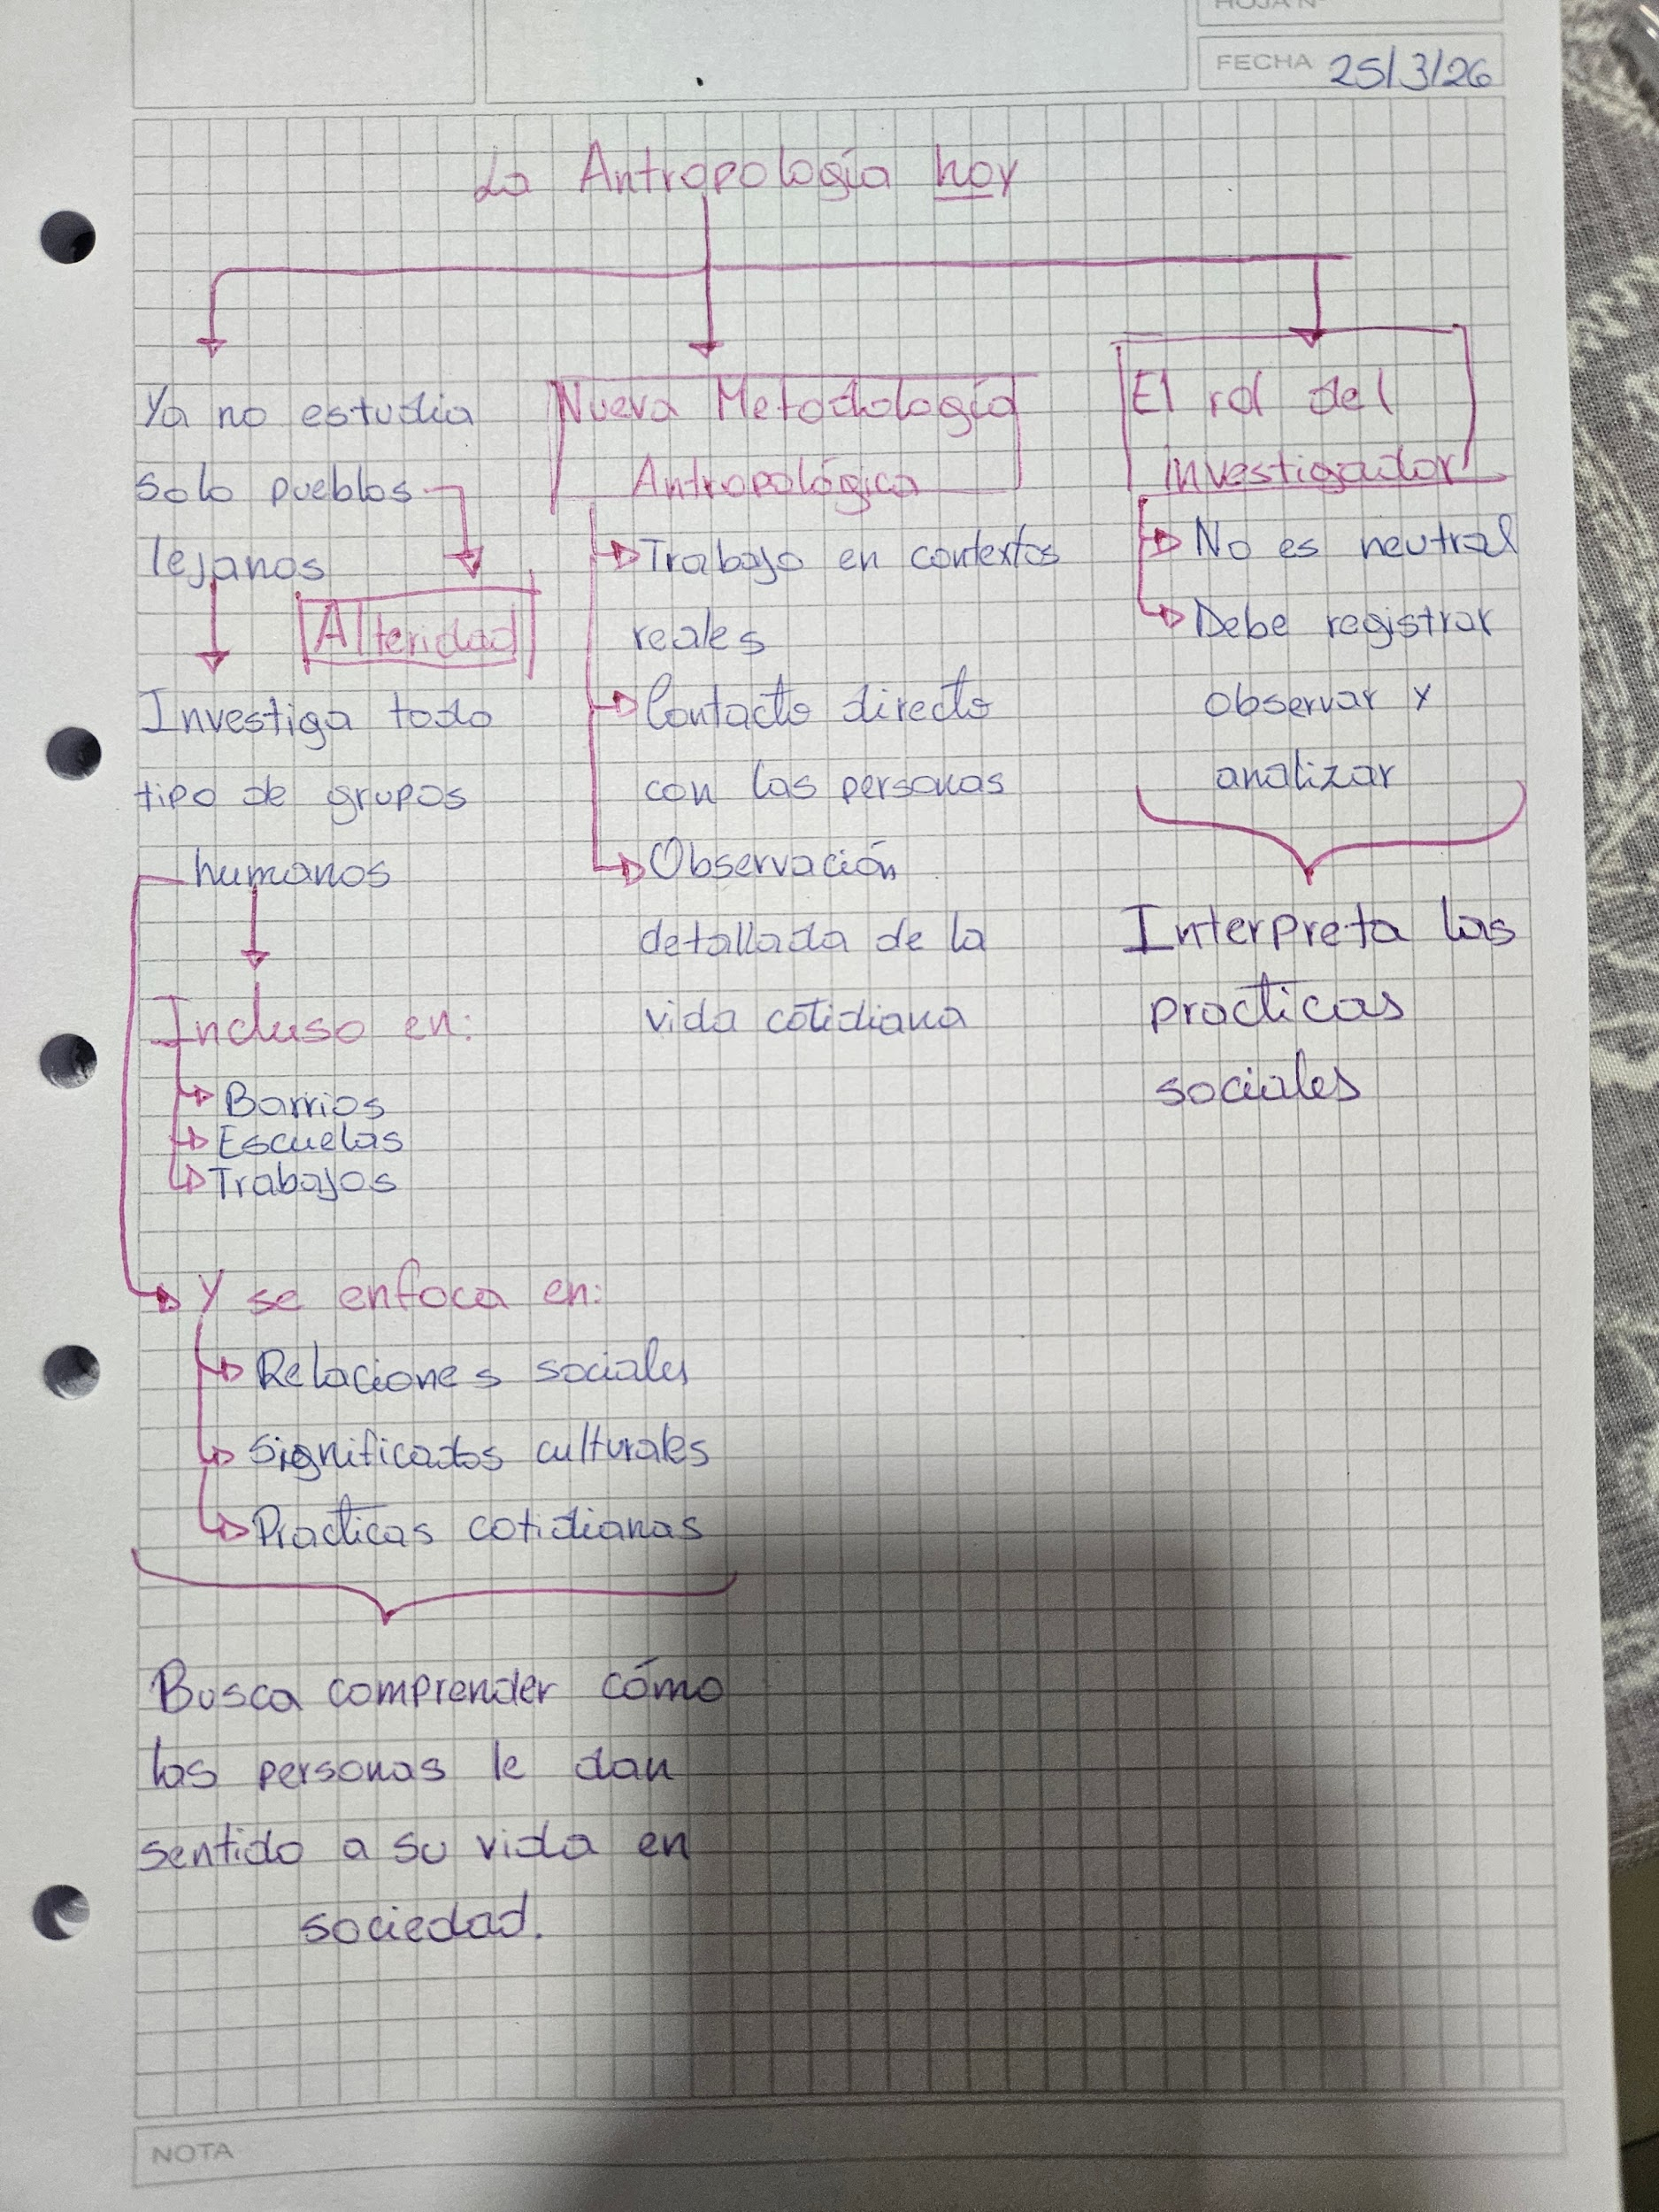 HOJA N°
FECHA 25/3/26
La Antropología hoy
Ya no estudia
solo pueblos
lejanos
Alteridad
Investiga todo
tipo de grupos
humanos
Incluso en:
Barrios
Escuelas
Trabajos
Y se enfoca en:
Relaciones sociales
Significados culturales
Practicas cotidianas
Busca comprender cómo
las personas le dan
sentido a su vida en
sociedad.
Nueva Metodología
Antropológica
Trabajo en contextos
reales
Contacto directo
con las personas
Observación
detallada de la
vida cotidiana
El rol del
investigador
No es neutral
Debe registrar
observar y
analizar
Interpreta las
practicas
sociales
NOTA